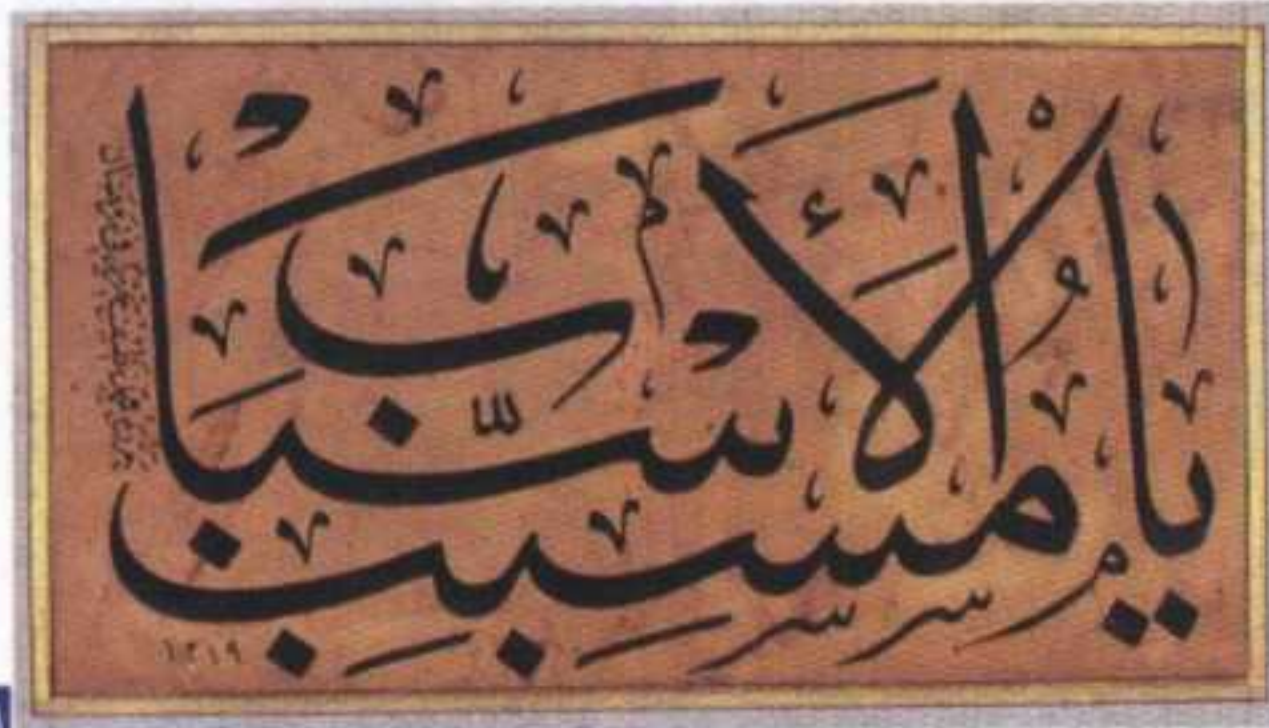 يا مسبب الأسباب
١٢١٩